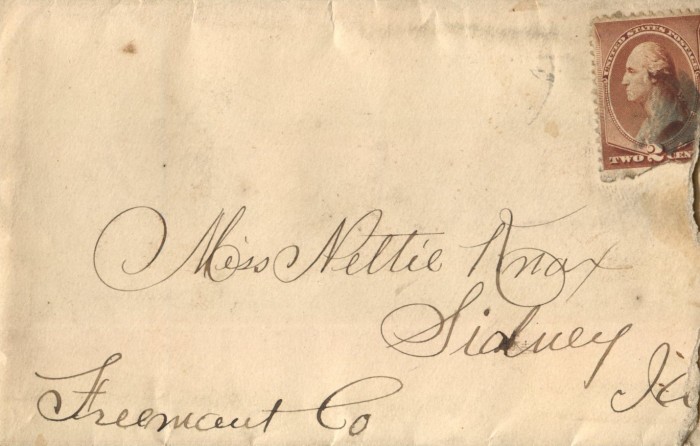 UNITED STATES POSTAGE
TWO 2 CEN
Miss Nettie Knox
Sidney
Freemont Co